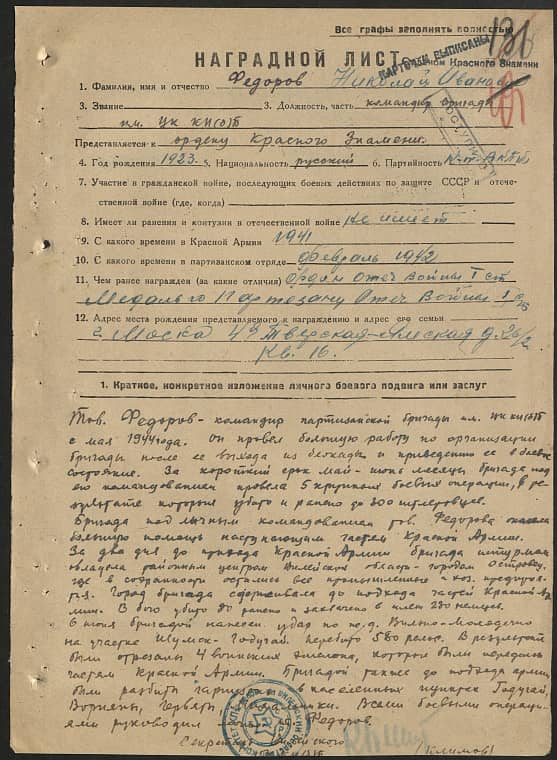 Все графы заполнять полностью
131
НАГРАДНОЙ ЛИСТ
Красного Знамени
КАРТОЧКИ ВЫПИСАНЫ
1. Фамилия, имя и отчество Федоров Николай Иванович
3. Звание 3. Должность, часть командир бригады
им. ЦК КП(б)Б
Представляется к ордену Красного Знамени.
4. Год рождения 1923 5. Национальность русский 6. Партийность ВКПб
7. Участие в гражданской войне, последующих боевых действиях по защите СССР и отече-
ственной войне (где, когда)
8. Имеет ли ранения и контузии в отечественной войне не имеет
9. С какого времени в Красной Армии 1941
10. С какого времени в партизанском отряде февраль 1942
11. Чем ранее награжден (за какие отличия) Орден Отеч войны I ст
Медаль Партизану Отеч войны I ст
12. Адрес места рождения представляемого к награждению и адрес его семьи
г. Москва 4я Тверская-Ямская д. 26/2
кв. 16.
1. Краткое, конкретное изложение личного боевого подвига или заслуг
Тов. Федоров - командир партизанской бригады им. ЦК КП(б)Б
с мая 1944 года. Он провел большую работу по организации
бригады после ее выхода из блокады и приведению ее в боевое
состояние. За короткий срок май - июнь месяцы бригада под
его командованием провела 5 крупных боевых операций, в ре-
зультате которых убито и ранено до 300 гитлеровцев.
Бригада под личным командованием тов. Федорова оказала
большую помощь наступающим частям Красной Армии.
За два дня до прихода Красной Армии бригада штурмом
овладела районным центром Вилейской области - городом Островец,
где в сохранности остались все промышленные и хоз. предприя-
тия. Город бригада удерживала до подхода частей Красной Ар-
мии. В бою убито до ранено и захвачено в плен 230 немцев.
6 июня бригадой нанесен удар по ж.д. Вильно-Молодечно
на участке Шумск - Годутай. перебито 580 рельс. В результате
были отрезаны 4 воинских эшелона, которые были переданы
частям Красной Армии. Бригадой также до подхода армии
были разбиты гарнизоны в населенных пунктах Годутай,
Ворняны, Герьяты, Всеми боевыми операци-
ями руководил Федоров.
Секретарь
(Климов)